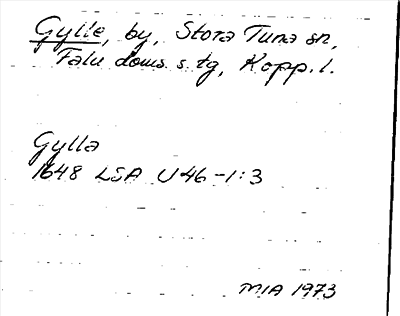 Gylle, by, Stora Tuna sn,
Falu doms. s. tg, Kopp. l.
Gylla
1648 LSA U46-1:3
MIA 1973